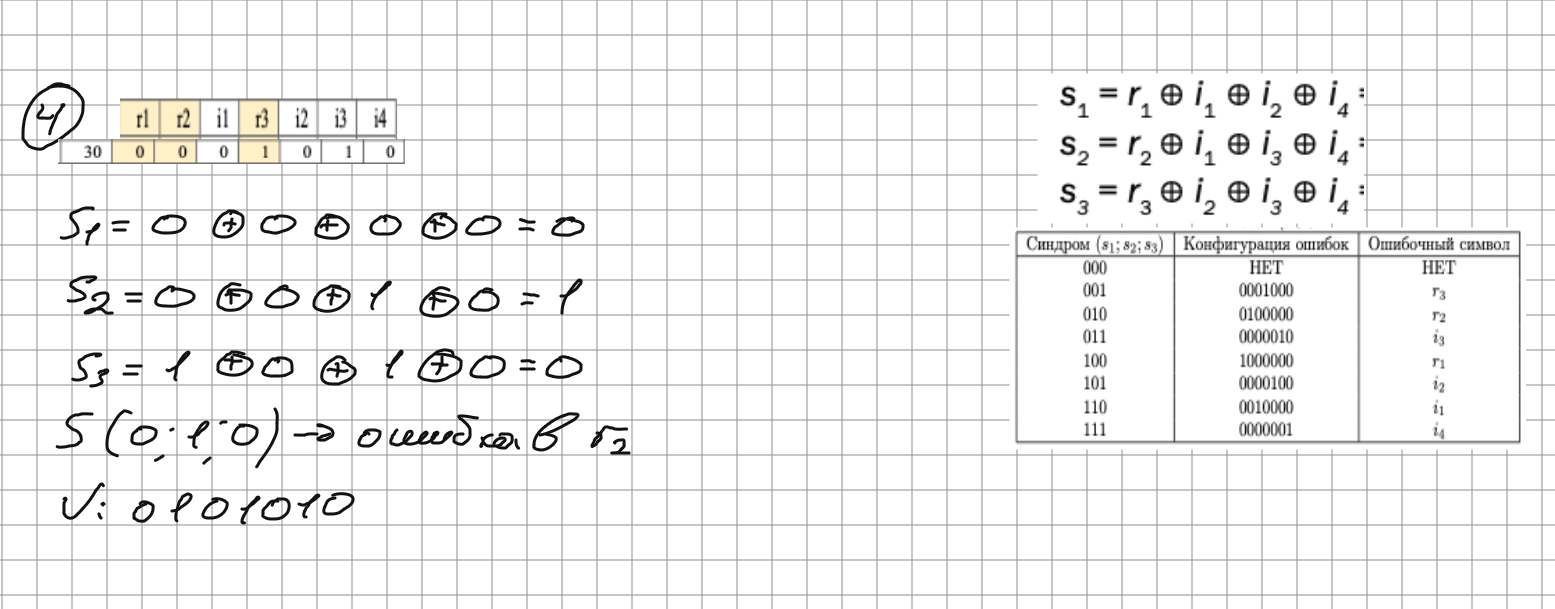 4
r1 r2 i1 r3 i2 i3 i4
30 0 0 0 1 0 1 0
S1 = 0 ⊕ 0 ⊕ 0 ⊕ 0 = 0
S2 = 0 ⊕ 0 ⊕ 1 ⊕ 0 = 1
S3 = 1 ⊕ 0 ⊕ 1 ⊕ 0 = 0
S (0; 1; 0) → ошибка в r2
V: 0101010
s1 = r1 ⊕ i1 ⊕ i2 ⊕ i4 =
s2 = r2 ⊕ i1 ⊕ i3 ⊕ i4 =
s3 = r3 ⊕ i2 ⊕ i3 ⊕ i4 =
Синдром (s1; s2; s3) Конфигурация ошибок Ошибочный символ
000 НЕТ НЕТ
001 0001000 r3
010 0100000 r2
011 0000010 i3
100 1000000 r1
101 0000100 i2
110 0010000 i1
111 0000001 i4